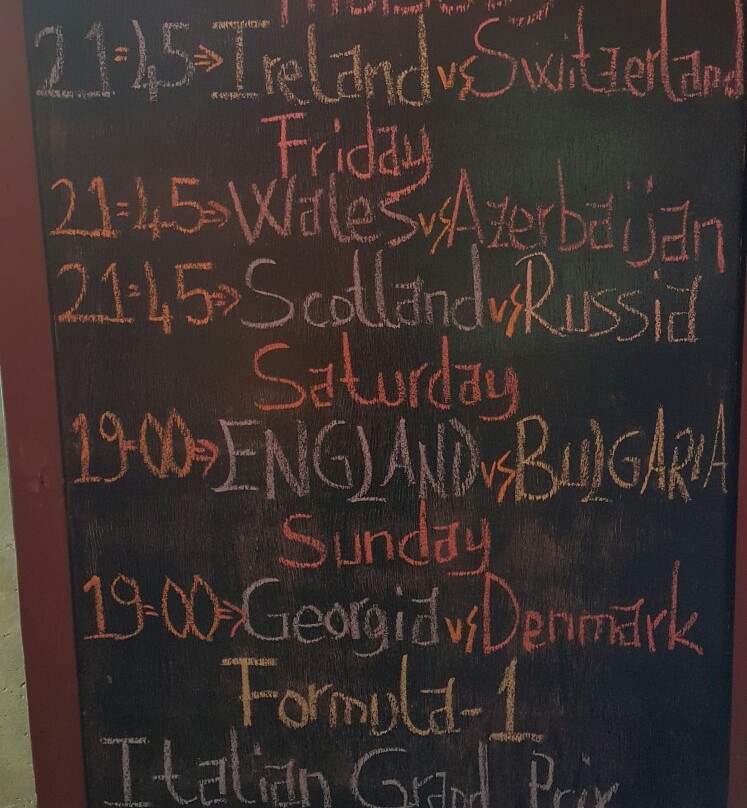 Thursday
21:45⇒Ireland vs Switzerland
Friday
21:45⇒Wales vs Azerbaijan
21:45⇒Scotland vs Russia
Saturday
19:00⇒ENGLAND vs BULGARIA
Sunday
19:00⇒Georgia vs Denmark
Formula-1
Italian Grand Prix